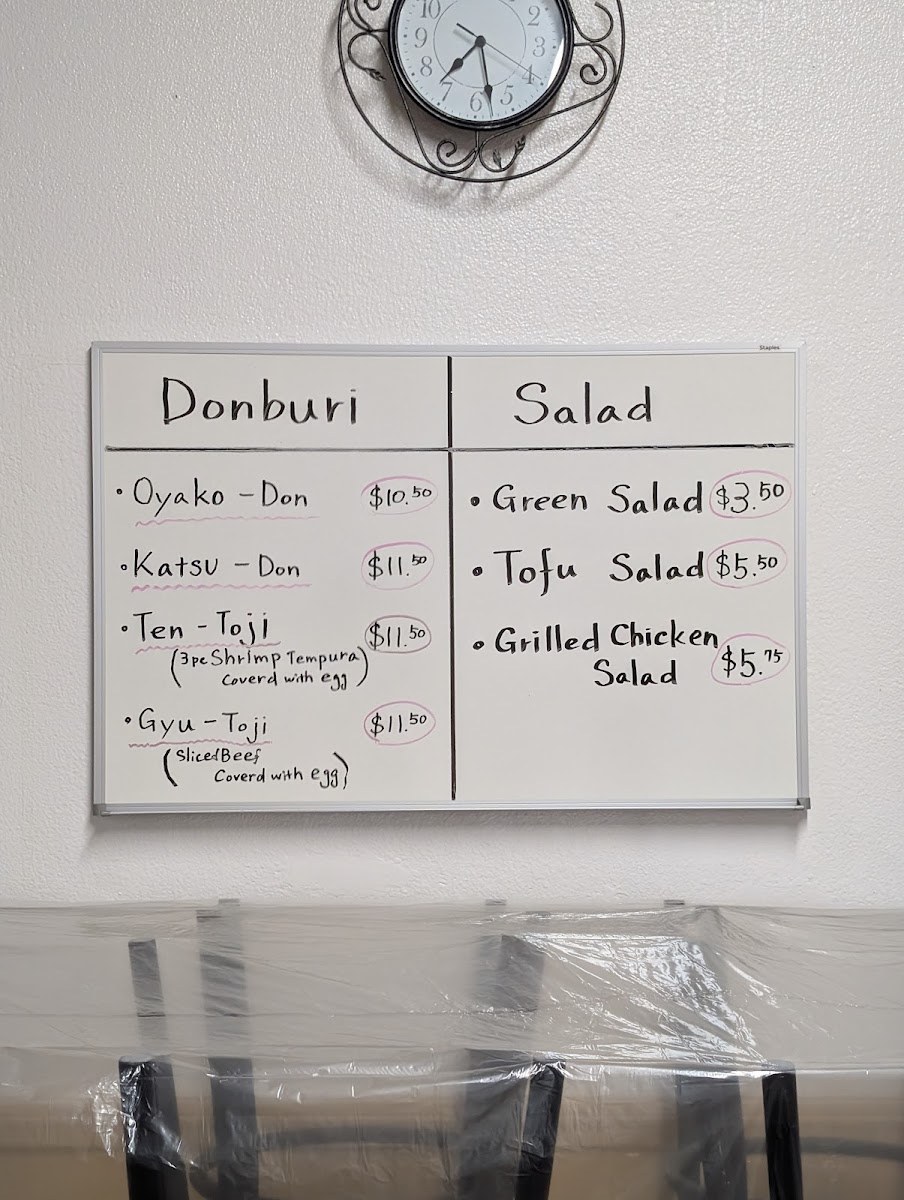 10
2
9
3
8
4
7
6
5
Staples
Donburi
• Oyako - Don $10.50
• Katsu - Don $11.50
• Ten - Toji $11.50
(3pc Shrimp Tempura
Coverd with egg)
• Gyu - Toji $11.50
(Sliced Beef
Coverd with egg)
Salad
• Green Salad $3.50
• Tofu Salad $5.50
• Grilled Chicken
Salad $5.75